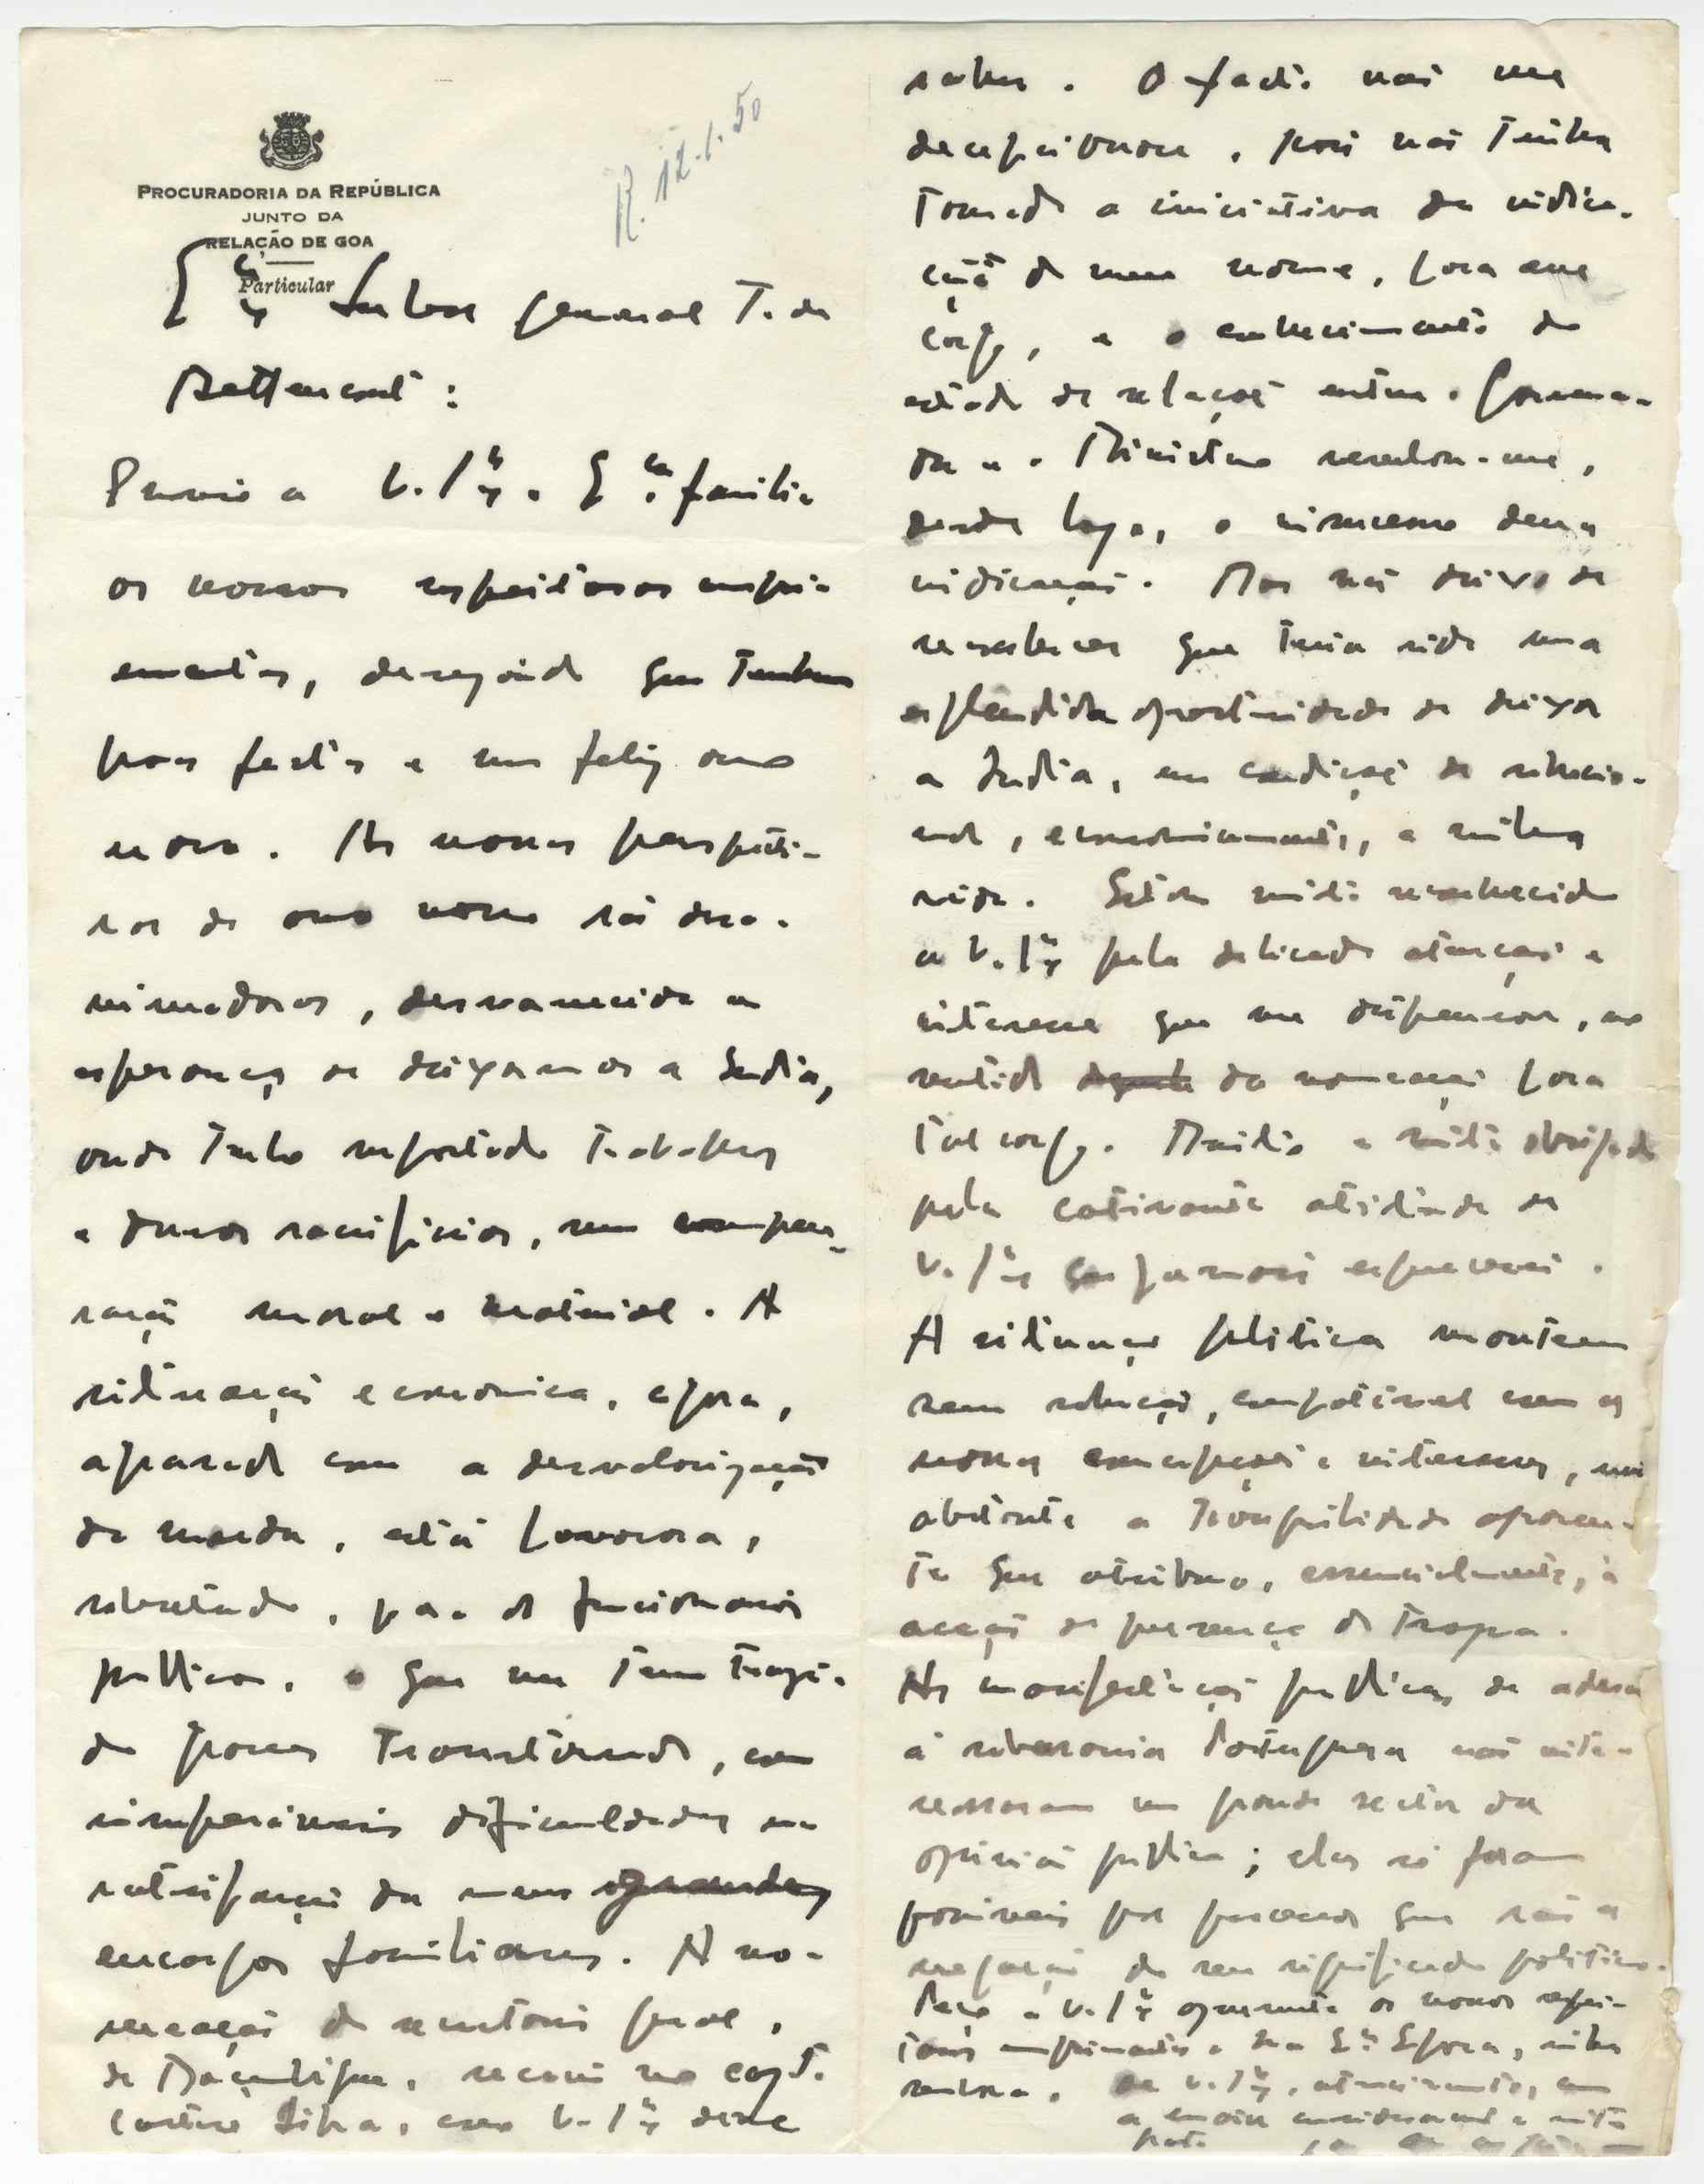 PROCURADORIA DA REPÚBLICA
JUNTO DA
RELAÇÃO DE GOA
Particular
R. 12.1.50
Senhor General T. de
Bettencourt:
Envio a V. Exª e Exma família
os nossos respeitosos cumpri-
mentos, desejando que tenham
boas festas e um feliz ano
novo. As nossas perspecti-
vas do ano novo são desa-
nimadoras, desvanecida a
esperança de deixarmos a India,
onde tenho suportado trabalhos
e duros sacrificios, sem compen-
sação moral e material. A
situação economica, agora,
agravada com a desvalorização
da moeda, está pavorosa,
sobretudo, para os funcionarios
publicos, o que me tem trazi-
do graves transtornos, com
insuperaveis dificuldades na
satisfação de meus grandes
encargos familiares. A no-
meação de secretario geral,
de Moçambique, recaiu no capt.
como V. Exª deve
saber. O facto não me
decepcionou, pois não tinha
tomado a iniciativa da indica-
ção do meu nome, para esse
cargo, e o conhecimento do
estado de relações entre o Governa-
dor e o Ministro revelou-me,
desde logo, o insucesso dessa
indicação. Mas não deixo de
reconhecer que teria sido uma
esplendida oportunidade de deixar
a India, em condições de solucio-
nar, economicamente, a minha
vida. Estou muito reconhecido
a V. Exª pela delicada atenção e
interesse que me dispensou, no
sentido da nomeação para
tal cargo. Muito e muito obrigado
pela cativante atitude de
V. Exª que jamais esquecerei.
A situação politica mantem
sem solução, compativel com as
nossas concepções e interesses, não
obstante a tranquilidade aparen-
te que atribuo, essencialmente, à
acção de presença da tropa.
As manifestações publicas de adesão
á soberania Portuguesa não inte-
ressaram um grande sector da
opinião publica; elas só foram
possiveis por processos que são a
negação do seu significado politico.
Peço a V. Exª apresente os nossos respei-
tosos cumprimentos a Sua Exª Esposa, minha
senhora. De V. Exª, atenciosamente, com
a maior consideração e muito
grato